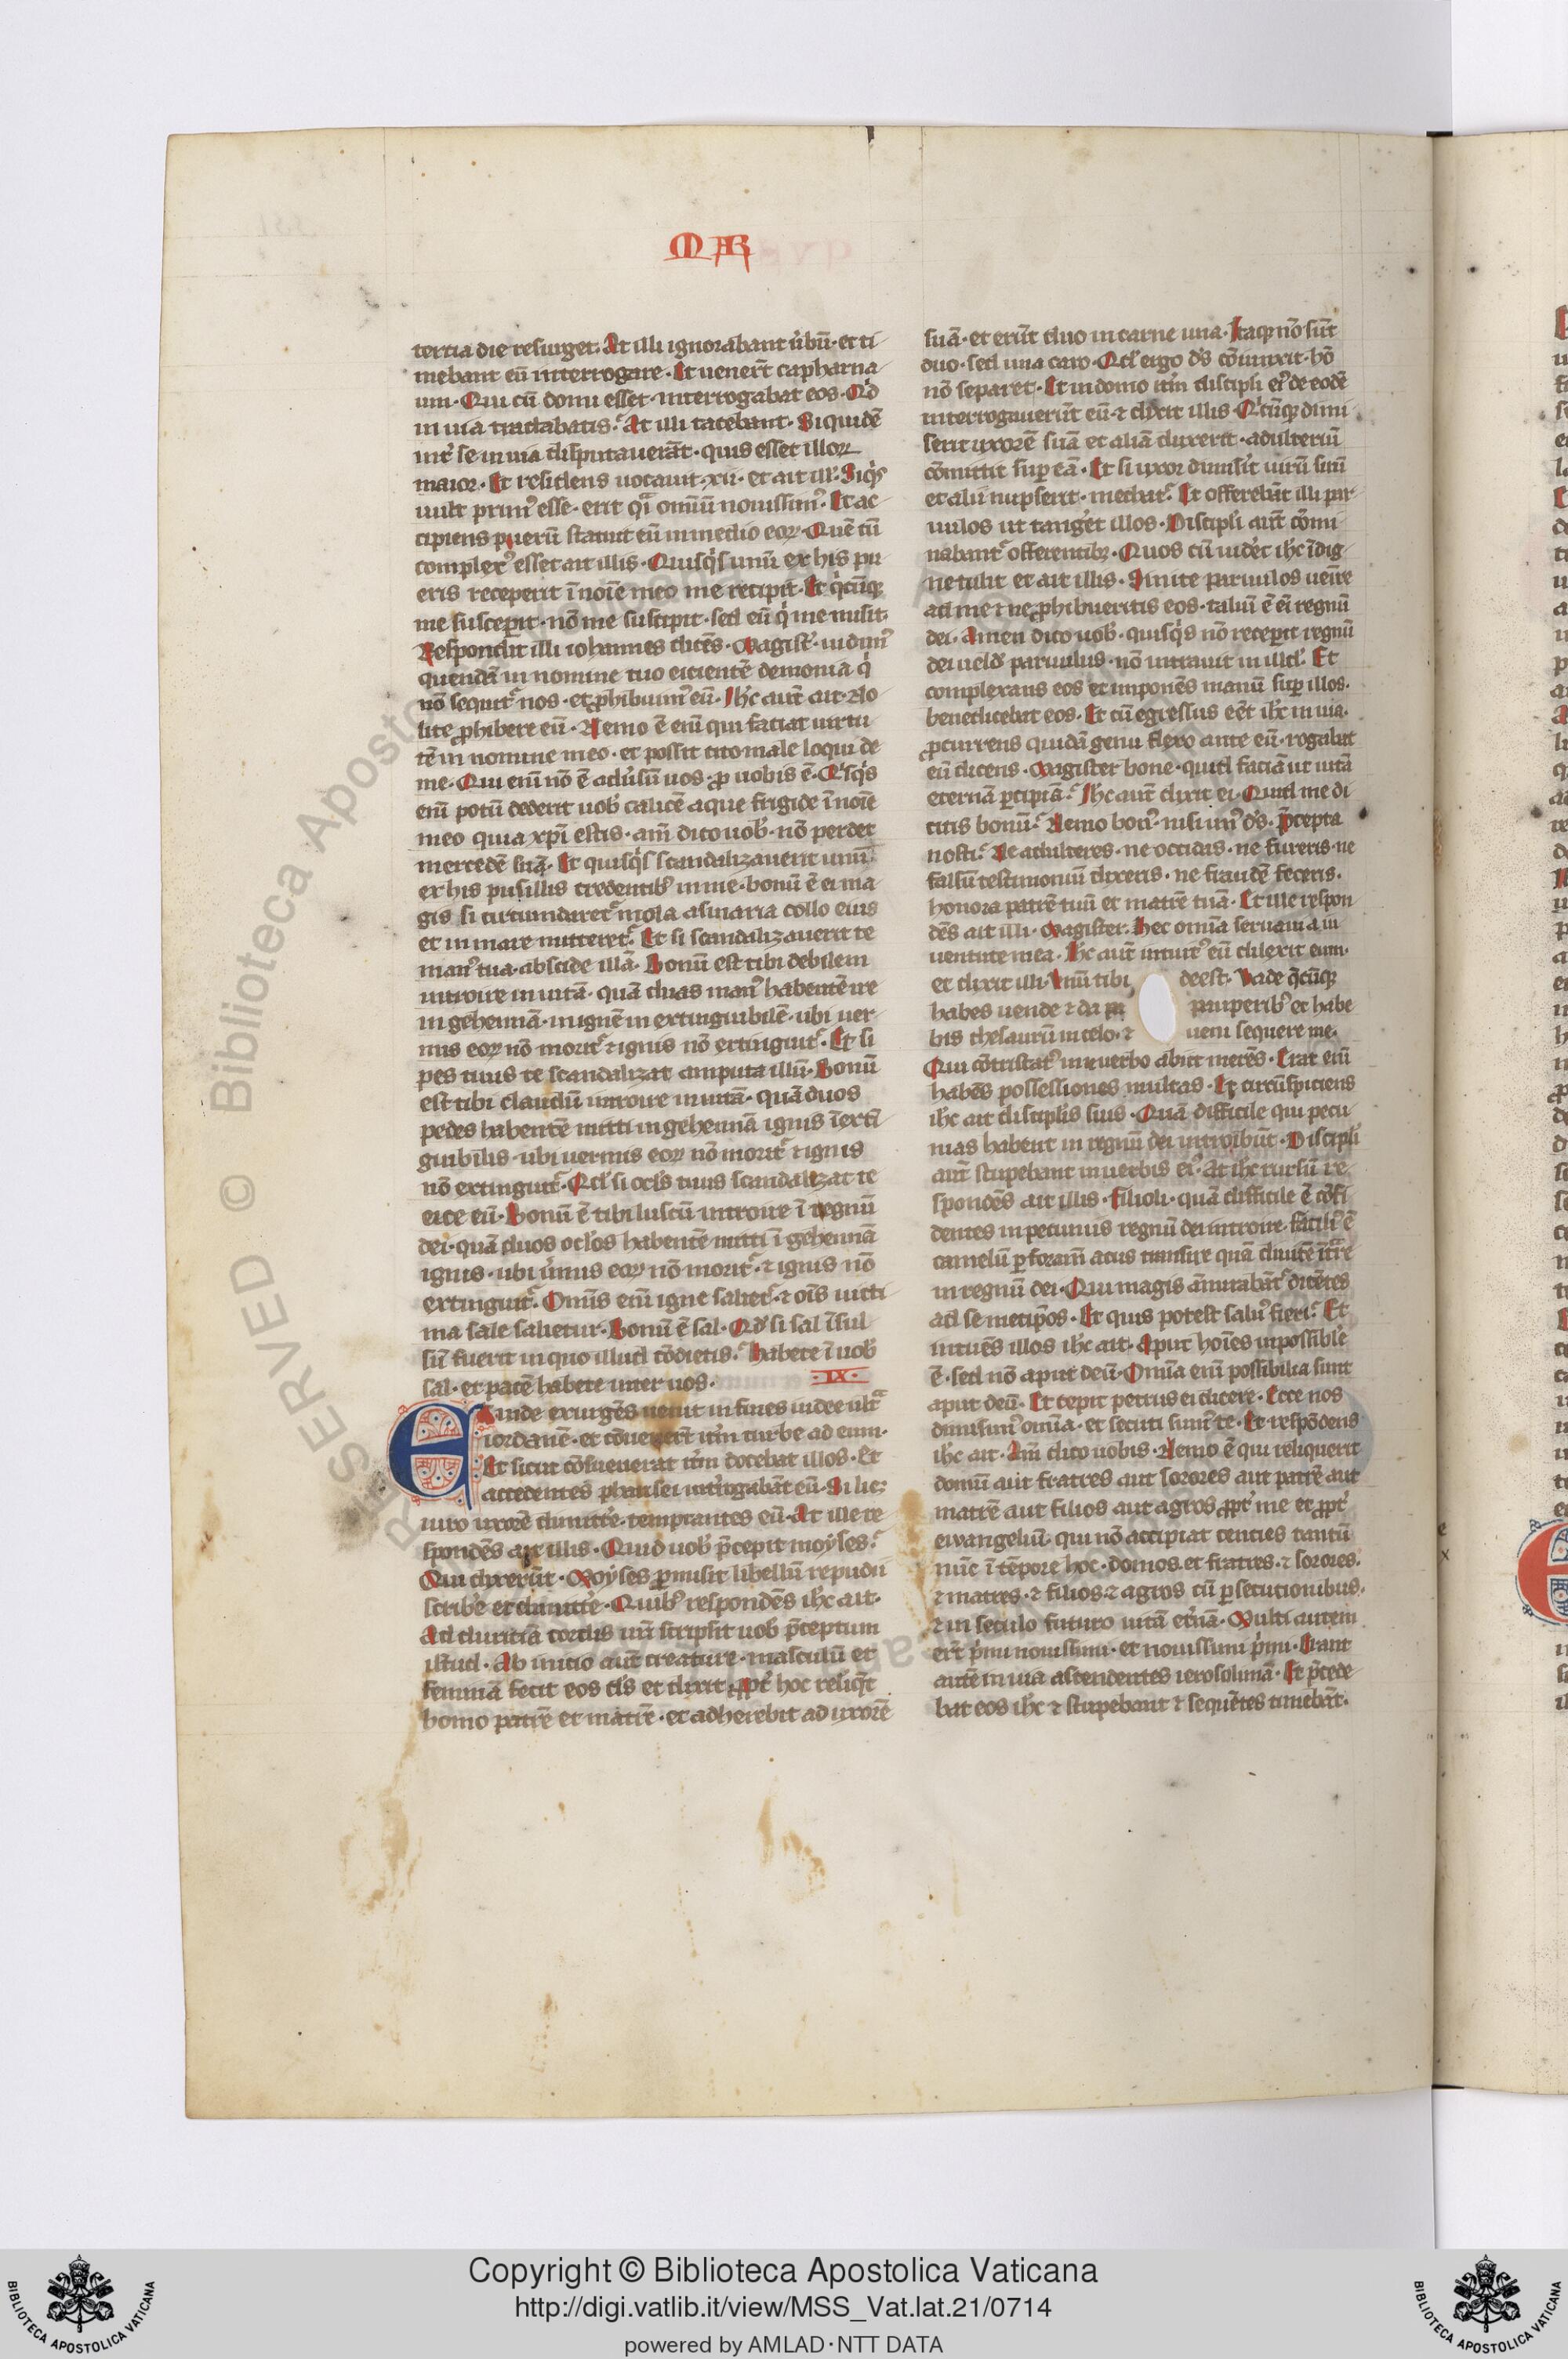 MAR
tertia die resurget. At illi ignorabant ũbũ· et ti-
mebant eũ interrogare· Et uener̃t capharna-
um· Qui cũ domi esset interrogabat eos· Qͥd
in uia tractabatis. At illi tacebant· Siquidẽ
int̾ se in uia disputauerãt· quis esset illoꝝ
maior· Et residens uocauit ·xii· et ait ill̾· Siqͥs
uult primꝰ esse· erit oĩm nouissimꝰ· Et ac-
cipiens puerũ statuit eũ in medio eoꝝ· Quẽ cũ
complexꝰ esset ait illis· Quisqͥs unũ ex his pu-
eris receperit ĩ noĩe meo me recipit· Et qͥcũqꝫ
me susceperit· nõ me suscipit· sed eũ qͥ me misit·
Respondit illi iohannes dicẽs· Magist̾· uidimꝰ
quendã in nomine tuo eicientẽ demonia qͥ
nõ sequit᷑ nos· et ꝓhibuimꝰ eũ· Ihc aut̃ ait· No-
lite ꝓhibere eũ· Nemo ẽ eni᷑ qui faciat uirtu-
tẽ in nomine meo· et possit cito male loqui de
me· Qui eni᷑ nõ ẽ aduersũ uos· ꝓ uobis ẽ· Qͥsqͥs
eni᷑ potũ dederit uob̾ calicẽ aque frigide ĩ noĩe
meo quia xp̃i estis· am̃ dico uob̾· nõ perdet
mercedẽ suã· Et quisqͥs scandalizauerit unũ
ex his pusillis credentibꝰ in me· bonũ ẽ ei ma-
gis si circumdaret᷑ mola asinaria collo eius
et in mare mitteret᷑· Et si scandalizauerit te
manꝰ tua· abscide illã· Bonũ est tibi debilem
introire in uitã· quã duas manꝰ habentẽ ire
in gehennã· in ignẽ inextinguibilẽ· ubi uer-
mis eoꝝ nõ morit᷑ ⁊ ignis nõ extinguit᷑· Et si
pes tuus te scandalizat amputa illũ· Bonũ
est tibi claudũ introire in uitã· quã duos
pedes habentẽ mitti in gehennã ignis ĩexti-
guibilis· ubi uermis eoꝝ nõ morit᷑ ⁊ ignis
nõ extinguit᷑· Qd̾ si oclũs tuus scandalizat te
eice eũ· Bonũ ẽ tibi luscũ introire ĩ regnũ
dei· quã duos oclõs habentẽ mitti ĩ gehennã
ignis· ubi ũmis eoꝝ nõ morit᷑· ⁊ ignis nõ
extinguit᷑· Omĩs eni᷑ igne saliet᷑· ⁊ oĩs uicti-
ma sale salietur· Bonũ ẽ sal· Qd̾ si sal ĩsul-
sũ fuerit in quo illud cõdietis. habete ĩ uob̾
sal· et pacẽ habete inter uos· ·IX·
Et inde exurgẽs uenit in fines iudee ult̃
iordanẽ· et cõuener̃t it̾m turbe ad eum·
Et sicut cõsueuerat it̾m docebat illos· Et
accedentes pharisei int̾rogabãt eũ· Si licꝫ
uiro uxorẽ dimitt̾e· temptantes eũ· At ille re-
spondẽs ait illis· Quid uob̾ p̃cepit moyses.
Qui dixerũt· Moyses ꝑmisit libellũ repudii
scribe᷑ et dimitt̾e· Quibꝰ respondẽs ihc ait·
Ad duritiã cordis urĩ scripsit uob̾ p̃ceptum
istud· Ab initio aut̃ creature· masculũ et
feminã fecit eos dꝰs et dixit· ꝓpt̾ hoc relĩqt̃
homo patrẽ et matrẽ· et adherebit ad uxorẽ
suã· et erũt duo in carne una· Itaqꝫ nõ sũt
duo· sed una caro· Qd̾ ergo dꝰs cõiunxit· hõ
nõ separet· Et in domo it̾m discipĩi eiꝰ de eodẽ
interrogauerũt eũ ⁊ dixit illis· Qͥcũqꝫ dimi-
serit uxorẽ suã et aliã duxerit· adulteriũ
cõmittit suꝑ eã· Et si uxor dimisit̾ uirũ suũ
et alii nupserit· mechat᷑· Et offerebãt illi par-
uulos ut tanget̾ illos· Discipĩi aut̃ cõmi-
nabant᷑ offerentibꝫ· Quos cũ uidet̾ ihc ĩdig-
ne tulit et ait illis· Sinite paruulos uenĩre
ad me ⁊ ne ꝓhibueritis eos· taliũ ẽ eni᷑ regnũ
dei· Amen dico uob̾· quisqͥs nõ receperit regnũ
dei uelud̾ paruulus· nõ intrauit in illd̾· Et
complexans eos et imponẽs manũ suꝑ illos·
benedicebat eos· Et cũ egressus eẽt ihc in uia·
ꝓcurrens quidã genu flexo ante eũ· rogabat
eũ dicens· Magister bone· quid faciã ut uitã
eternã ꝑcipiã. Ihc aut̃ dixit ei· Quid me di-
citis bonũ· Nemo bonꝰ· nisi unꝰ dꝰs· p̃cepta
nosti· Ne adulteres· ne occidas· ne fureris· ne
falsũ testimoniũ dixeris· ne fraudẽ feceris·
honora patrẽ tuũ et matrẽ tuã· Et ille respon-
dẽs ait illi· Magister· hec omĩa seruaui a iu-
uentute mea· Ihc aut̃ intuitꝰ eũ dilexit eum·
et dixit illi· Unũ tibi deest· Uade q̃cũqꝫ
habes uende ⁊ da pauperibꝰ et habe-
bis thesaurũ in celo· ⁊ ueni sequere me·
Qui cõtristatꝰ in uerbo abiit merẽs· Erat eni᷑
habẽs possessiones multas· Et circũspiciens
ihc ait discipĩis suis· Quã difficile qui pecu-
nias habent in regnũ dei introibũt· Discipĩi
aut̃ stupebant in uerbis eiꝰ· At ihc rursũ re-
spondẽs ait illis· filioli· quã difficile ẽ cõfi-
dentes in pecuniis regnũ dei introire· faciliꝰ ẽ
camelũ ꝑ foram̃ acus transire quã diuitẽ ĩtr̃re
in regnũ dei· Qui magis am̃irabãt᷑ dicẽtes
ad semetip̃os· Et quis potest saluꝰ fieri. Et
intuẽs illos ihc ait· Aput hoĩes inpossible
ẽ· sed nõ aput deũ· Omĩa eni᷑ possibilia sunt
aput deũ· Et cepit petrus ei dicere· Ecce nos
dimisimꝰ omĩa· et secuti sumꝰ te· Et respõdens
ihc ait· Am̃ dico uobis· Nemo ẽ qui reliquerit
domũ aut fratres aut sorores aut patrẽ aut
matrẽ aut filios aut agros ꝓpt̾ me et ꝓpt̾
ewangeliũ· qui nõ accipiat centies tantũ
nũc ĩ tẽpore hoc· domos· et fratres· ⁊ sorores·
⁊ matres· ⁊ filios ⁊ agros cũ ꝑsecutionibus·
⁊ in seculo futuro uitã et̾nã· Multi autem
er̃t pͥmi nouissimi· et nouissimi pͥmi· Erant
autẽ in uia ascendentes ierosolimã· Et p̃cede-
bat eos ihc ⁊ stupebant ⁊ sequẽtes timebãt·
RESERVED © Biblioteca Aposto
Copyright © Biblioteca Apostolica Vaticana
http://digi.vatlib.it/view/MSS_Vat.lat.21/0714
powered by AMLAD·NTT DATA
BIBLIOTECA APOSTOLICA VATICANA
BIBLIOTECA APOSTOLICA VATICANA